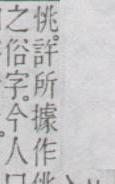 恌。許所據作
之俗字。今人